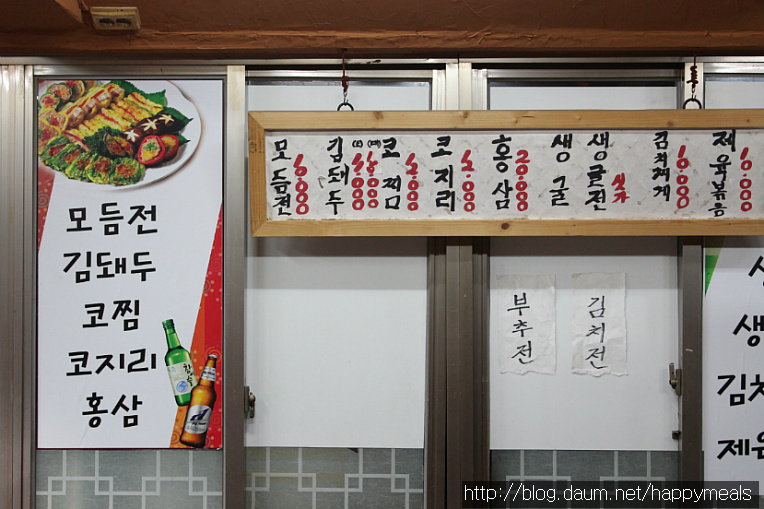 모듬전
김돼두
코찜
코지리
홍삼
모듬전 6.000
김돼두
코찜
코지리
홍삼
생굴
생굴전 싯가
김치찌게 6.000
제육볶음 6.000
부추전
김치전
참
생
김치
제육
http://blog.daum.net/happymeals